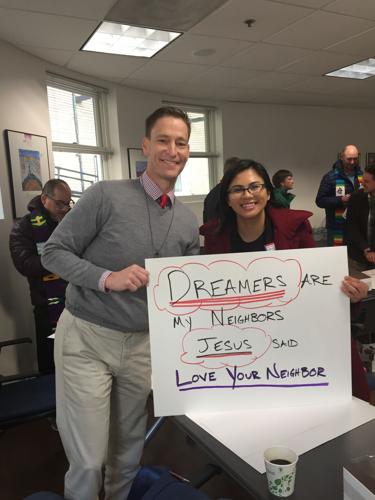 DREAMERS ARE
MY NEIGHBORS
JESUS SAID
LOVE YOUR NEIGHBOR